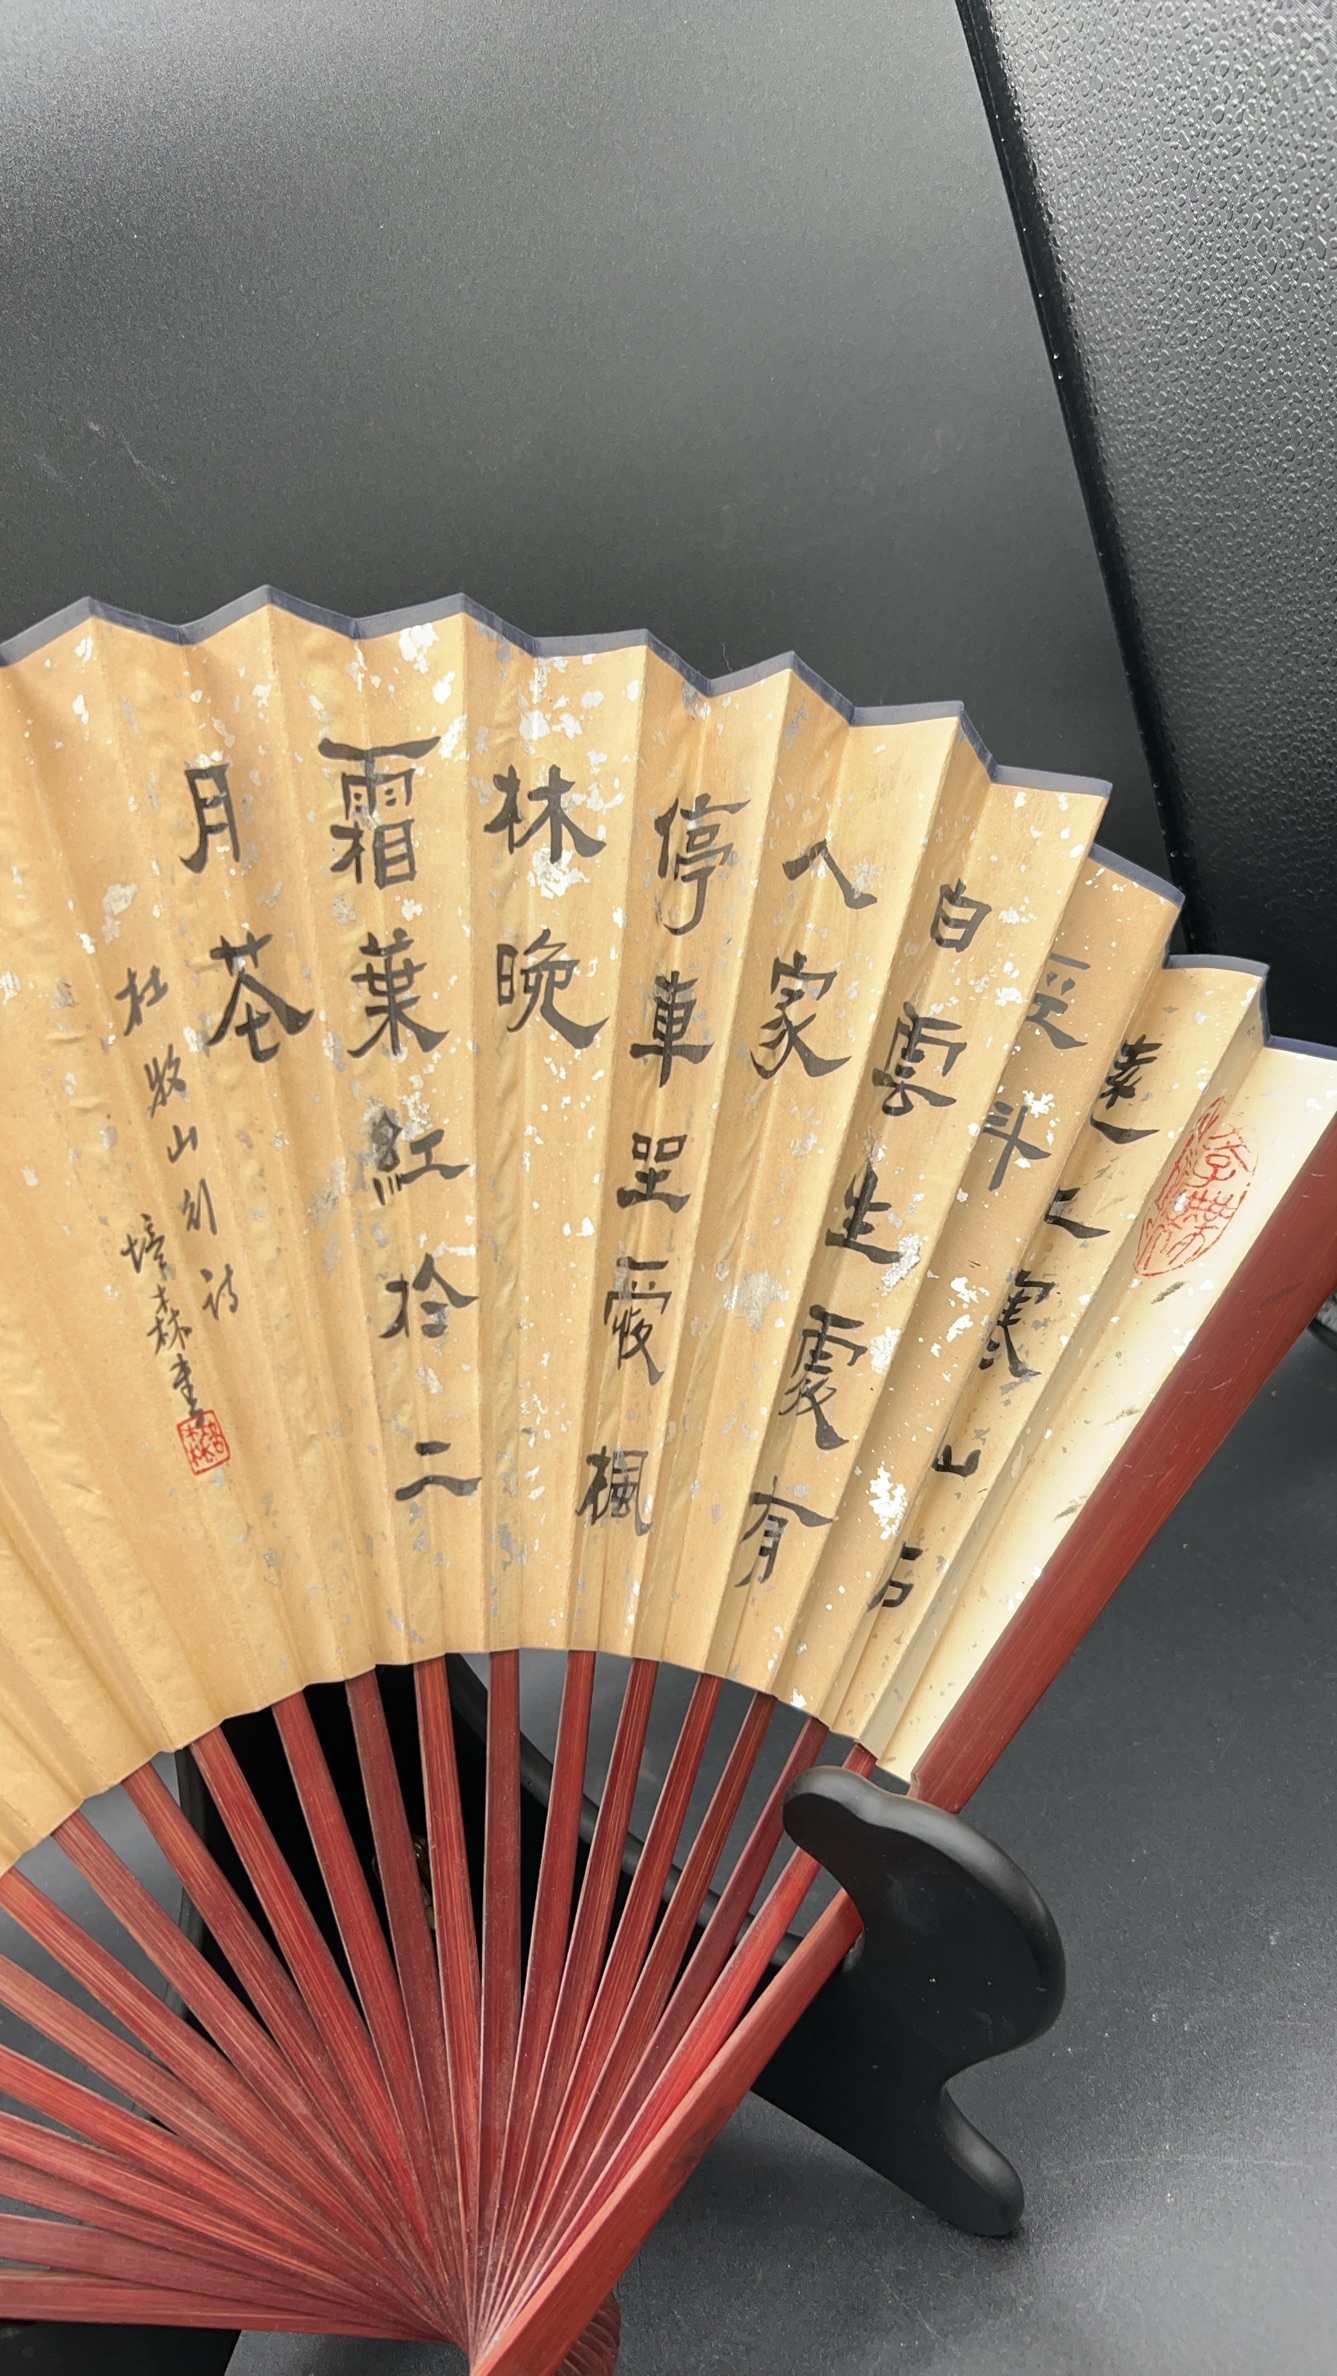 遠上寒山石
徑斜
白雲生處有
人家
停車坐愛楓
林晚
霜葉紅於二
月花
杜牧山行詩
培森書